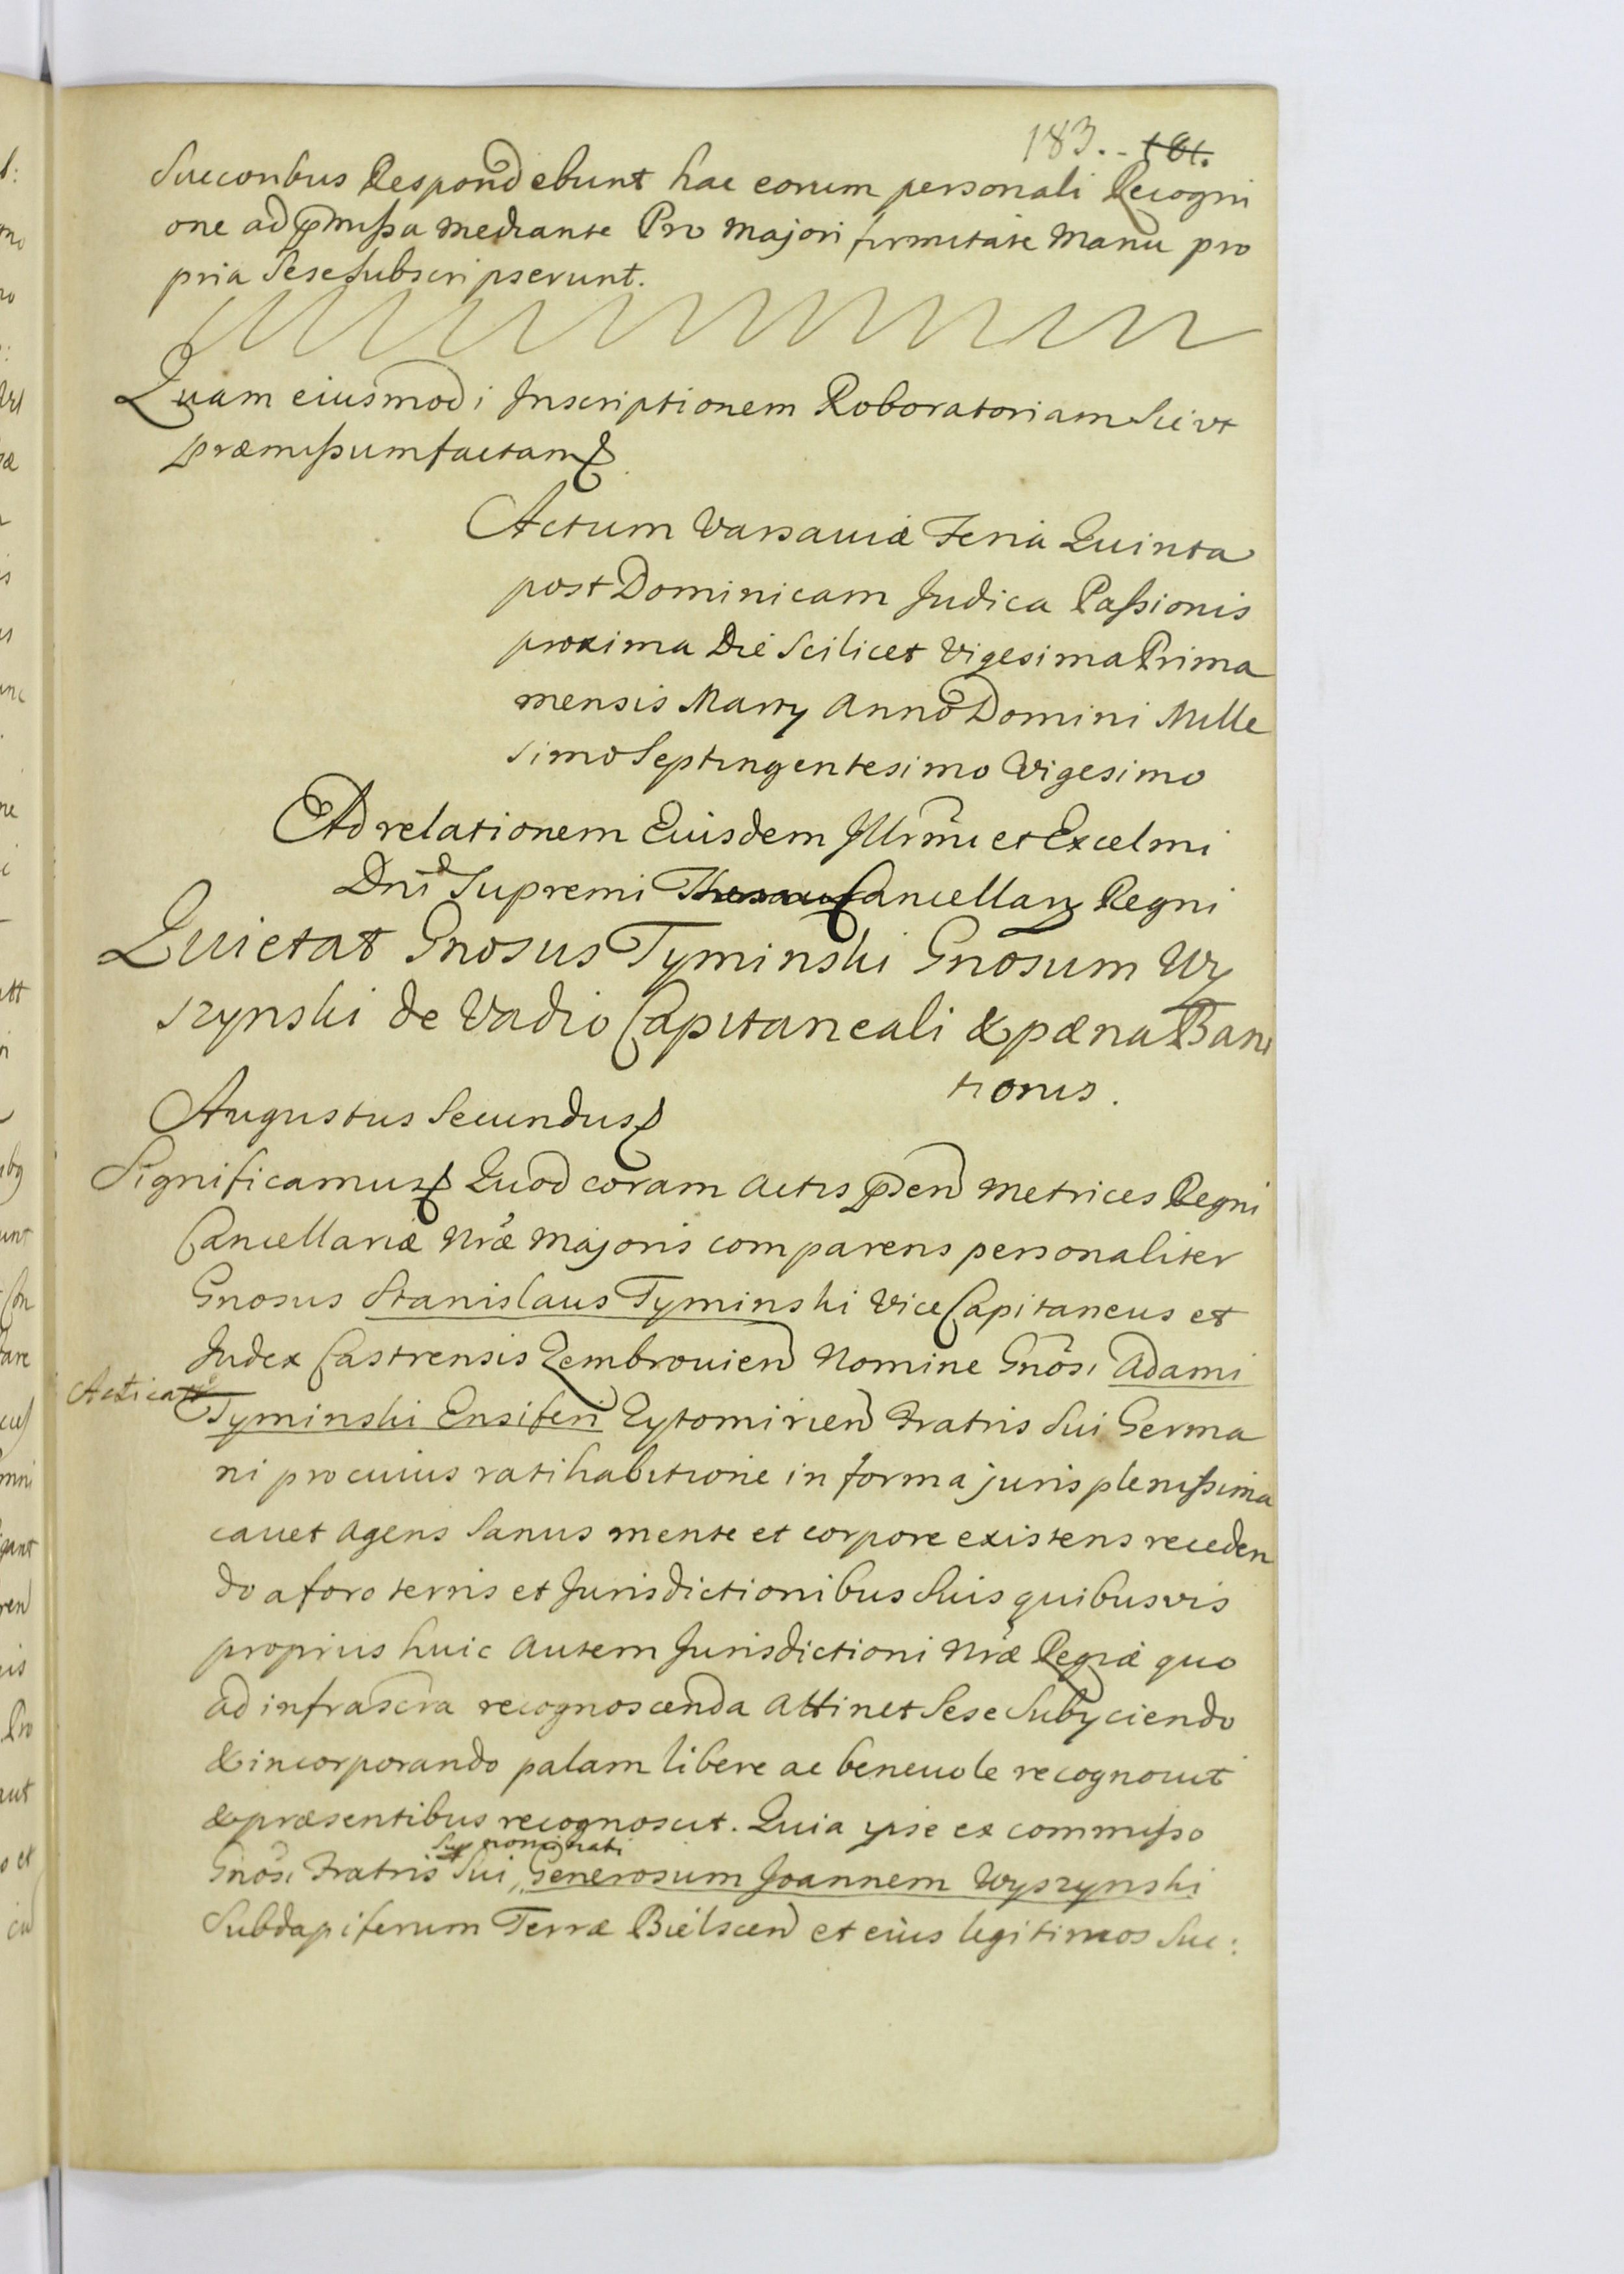 183. - 181.
Succoribus Respondebunt hac eorum personali Recogni
one ad pmissa mediante Pro majori firmitate manu pro
pria sese subscripserunt.
Quam eiusmodi Inscriptionem Roboratoriam sic vt
præmissum factam
Actum Varsauiæ Feria Quinta
post Dominicam Judica Passionis
proxima Die scilicet Vigesima Prima
mensis Martÿ Anno Domini Mille
simo Septingentesimo Vigesimo
Ad relationem Eiusdem Illrmi et Excelmi
Dni Supremi Thesau Cancellarÿ Regni
Quietat Gnosus Tyminski Gnosum Wy
szynski de Vadio Capitaneali & pæna Bani
tionis.
Augustus Secundus
Significamus Quod coram Actis psen Metrices Regni
Cancellariæ Nræ Majoris comparens personaliter
Gnosus Stanislaus Tyminski Vice Capitaneus et
Judex Castrensis Zembrouien Nomine Gnosi Adami
Acticat
Tyminski Ensiferi Zytomirien Fratris Sui Germa
ni pro cuius ratihabitione in forma juris plenissima
cauet Agens Sanus mente et corpore existens receden
do a foro terris et Jurisdictionibus suis quibusvis
proprijs huic Autem Jurisdictioni Nræ Regiæ quo
ad infrascra recognoscenda Attinet Sese Subyciendo
& incorporando palam libere ac beneuole recognouit
& præsentibus recognoscit. Quia ipse ex commisso
Supnominati
Gnosi Fratris Sui, Generosum Joannem Wyszynski
Subdapiferum Terræ Bielscen et eius legitimos Suc: